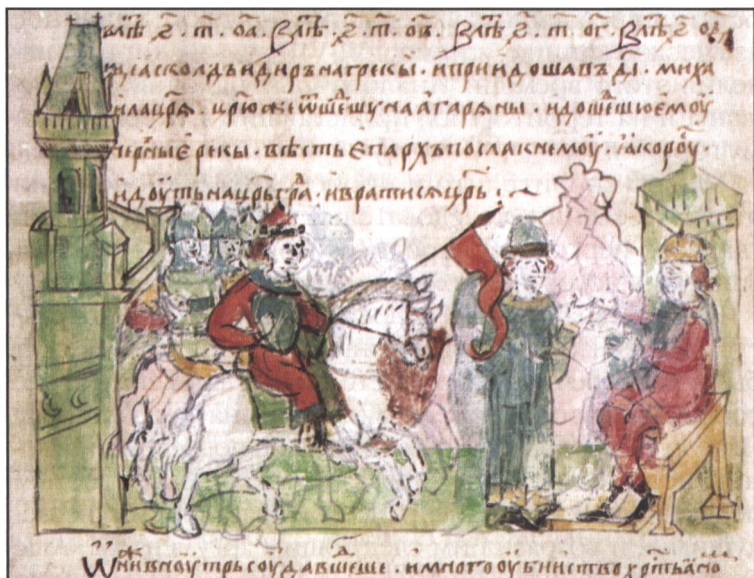 влѣ҃ ҂ѕ҃ . т҃ . о҃а . Влѣ҃ ҂ѕ҃ . т҃ . о҃в . Влѣ҃ ҂ѕ҃ . т҃ . о҃г . Влѣ҃ ҂ѕ҃
асколдъ и диръ на грекы . и приидоша въ д҃і . миха
илацр҃ѧ . цр҃ю же ѿшєшу на агарѧны . и дошєшю ємоу
черныє рекы . вѣсть єпархъ посла к нємоу . ꙗко роу
идоуть на цр҃ьгра . и вратисѧ цр҃ь :
вноутрь соуда вшєше . и много оубииство хр҃тьѧно